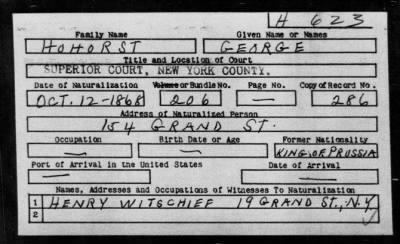 H 623
Family Name Given Name or Names
HOHORST GEORGE
Title and Location of Court
SUPERIOR COURT, NEW YORK COUNTY.
Date of Naturalization Volume or Bundle No. Page No. Copy of Record No.
OCT. 12-1868 206 — 286
Address of Naturalized Person
154 GRAND ST.
Occupation Birth Date or Age Former Nationality
— — KING OF PRUSSIA
Port of Arrival in the United States Date of Arrival
— —
Names, Addresses and Occupations of Witnesses To Naturalization
1 HENRY WITSCHIEF 19 GRAND ST., N.Y
2